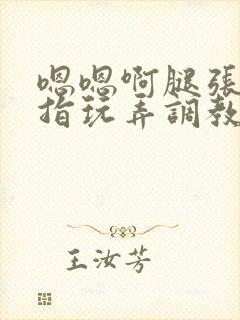 嗯嗯啊腿張
指玩弄調教
王汝芳